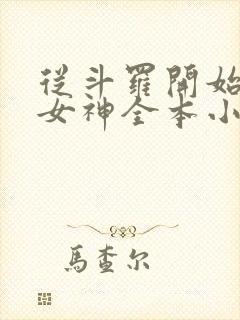 從斗羅開始
女神全本小
馬查尔